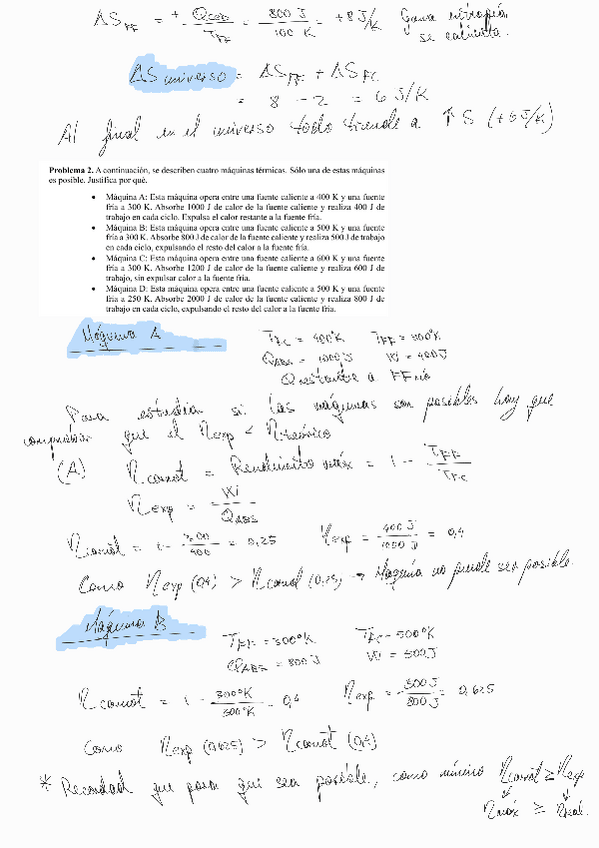 ΔS_FF = + Q_ced / T_FF = 800 J / 100 K = +8 J/K Gana entropía, se calienta.
ΔS universo = ΔS_FF + ΔS_FC
= 8 - 2 = 6 J/K
Al final en el universo todo tiende a ↑ S (+6 J/K)
Problema 2. A continuación, se describen cuatro máquinas térmicas. Sólo una de estas máquinas
es posible. Justifica por qué.
• Máquina A: Esta máquina opera entre una fuente caliente a 400 K y una fuente
fría a 300 K. Absorbe 1000 J de calor de la fuente caliente y realiza 400 J de
trabajo en cada ciclo. Expulsa el calor restante a la fuente fría.
• Máquina B: Esta máquina opera entre una fuente caliente a 500 K y una fuente
fría a 300 K. Absorbe 800 J de calor de la fuente caliente y realiza 500 J de trabajo
en cada ciclo, expulsando el resto del calor a la fuente fría.
• Máquina C: Esta máquina opera entre una fuente caliente a 600 K y una fuente
fría a 300 K. Absorbe 1200 J de calor de la fuente caliente y realiza 600 J de
trabajo, sin expulsar calor a la fuente fría.
• Máquina D: Esta máquina opera entre una fuente caliente a 500 K y una fuente
fría a 250 K. Absorbe 2000 J de calor de la fuente caliente y realiza 800 J de
trabajo en cada ciclo, expulsando el resto del calor a la fuente fría.
Máquina A
T_FC = 400°K T_FF =
Q_ABS = 1000 J W = 400 J
Q restante a FFría
Para estudiar si las máquinas son posibles hay que
comprobar que el η exp < η teórico
(A) η carnot = Rendimiento máx = 1 - T_FF / T_FC
η exp = W / Q_ABS
η carnot = 1 - 300 / 400 = 0,25 η exp = 400 J / 1000 J = 0,4
Como η exp (0,4) > η carnot (0,25) → Máquina no puede ser posible.
Máquina B
T_FF = 300°K T_FC = 500°K
Q_ABS = 800 J W = 500 J
η carnot = 1 - 300°K / 500°K = 0,4 η exp = 500 J / 800 J = 0,625
Como η exp (0,625) > η carnot (0,4)
* Recordad que para que sea posible, como mínimo η carnot ≥ η exp
η máx ≥ η real.